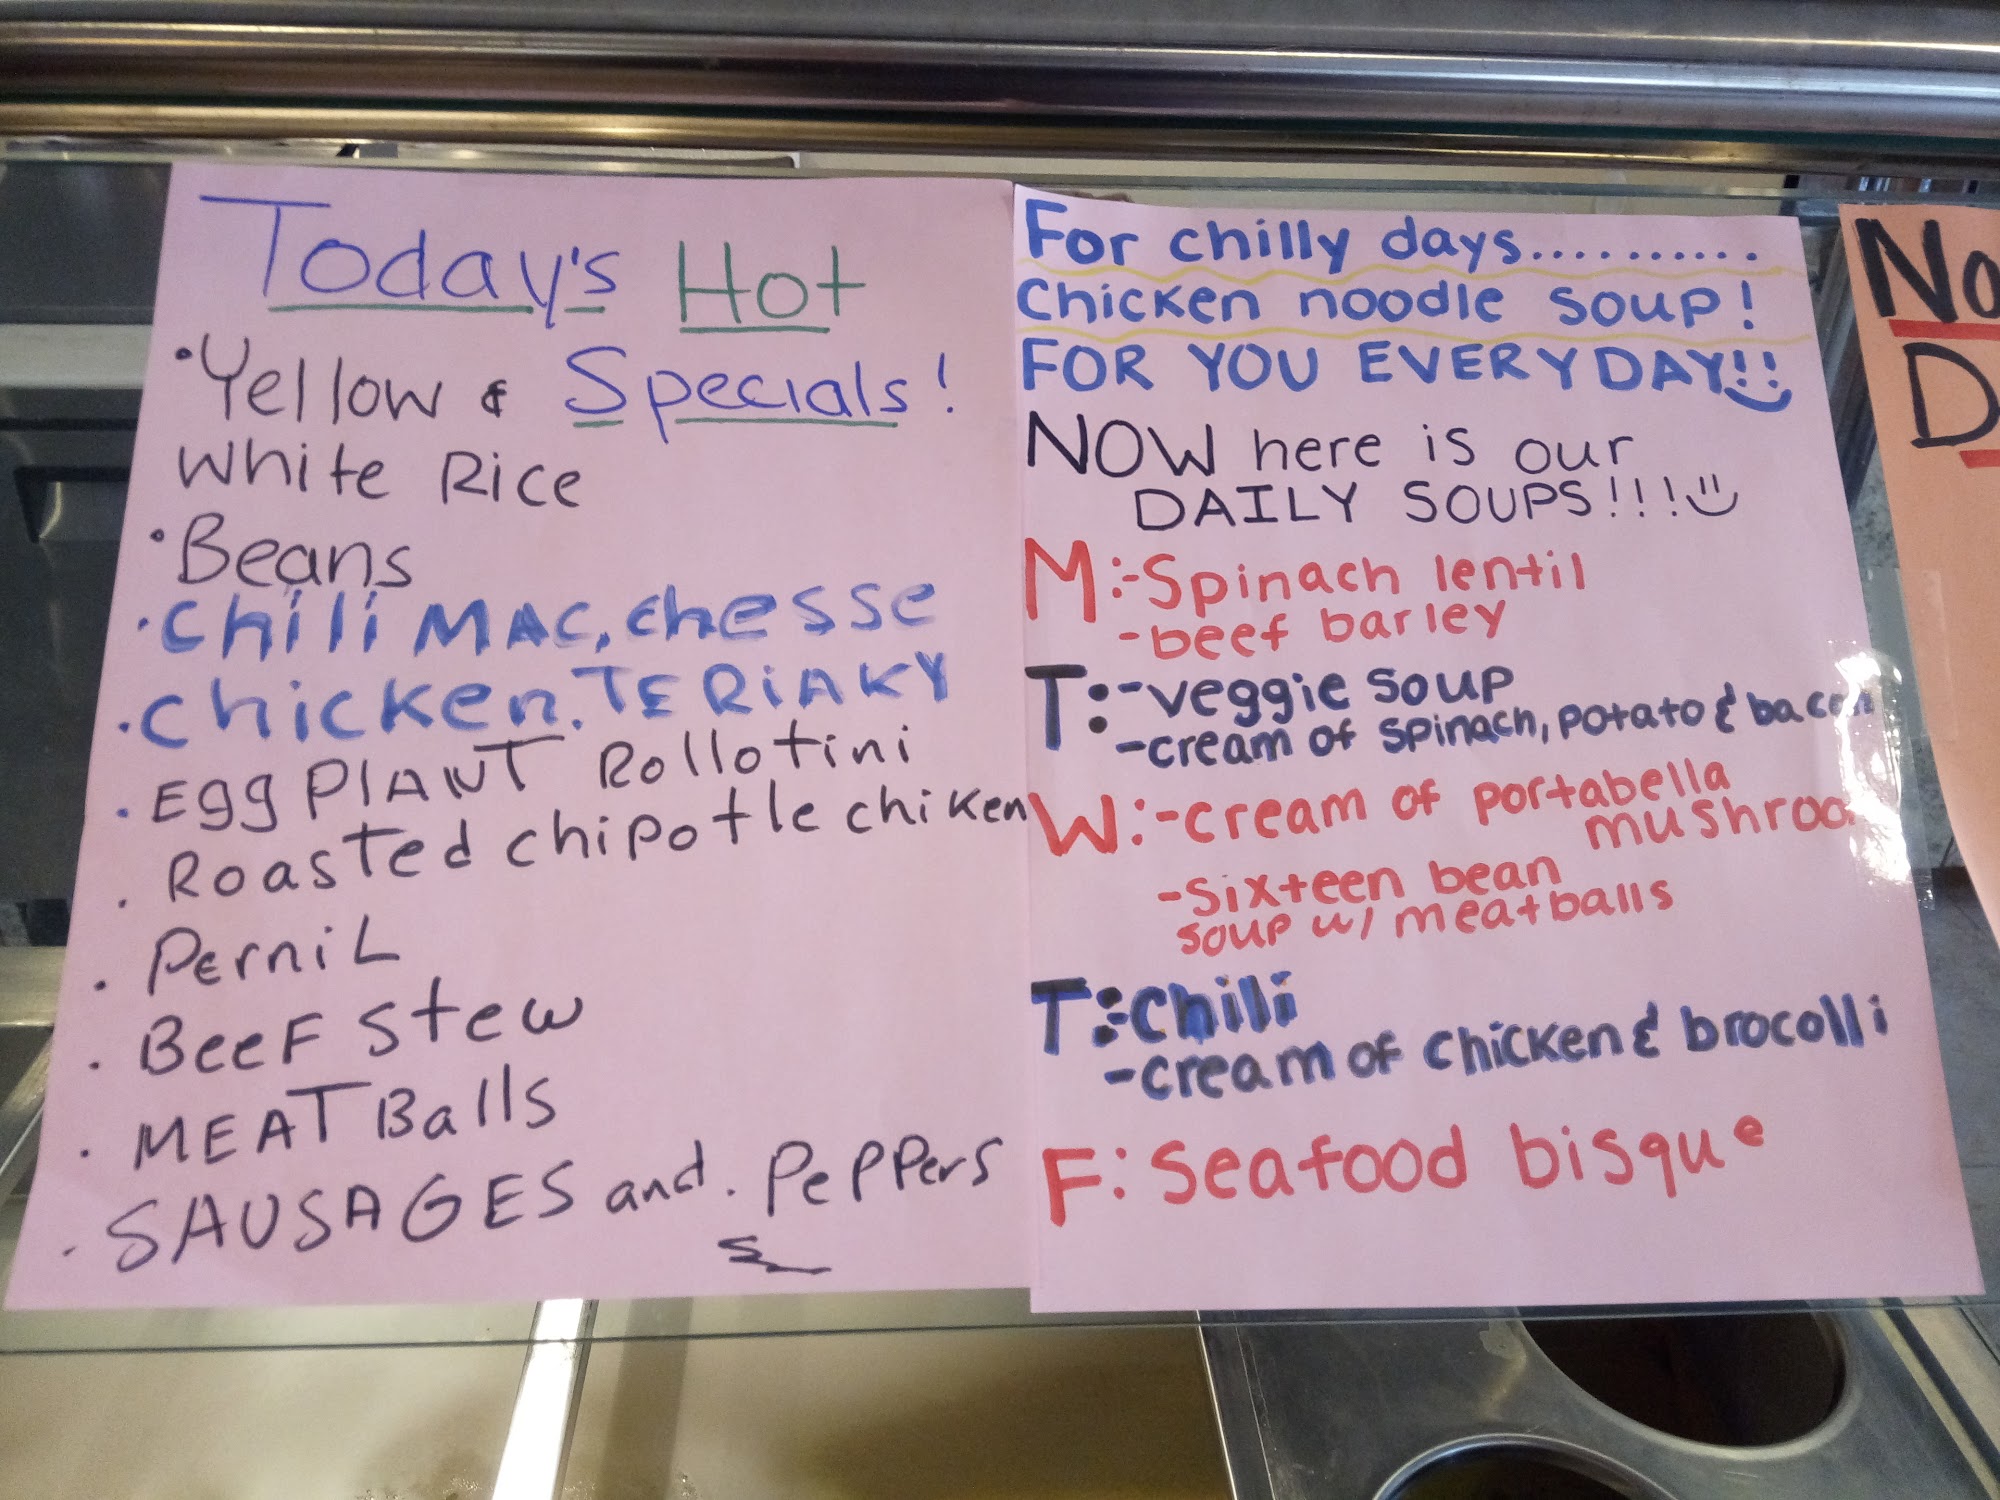 Today's Hot
Specials!
•Yellow &
White Rice
•Beans
•chili MAC, chesse
•chicken. TERiAKY
•Egg PlANT Rollotini
•Roasted chipotle chiken
•PerniL
•BeeF stew
•MEAT Balls
•SAUSAGES and. PePPers
For chilly days..........
Chicken noodle soup!
FOR YOU EVERYDAY!!
NOW here is our
DAILY SOUPS!!!
M:-Spinach lentil
-beef barley
T:-veggie soup
-cream of spinach, potato & bacon
W:-cream of portabella
mushroom
-sixteen bean
soup w/ meatballs
T:-chili
-cream of chicken & brocolli
F: Seafood bisque
No
D